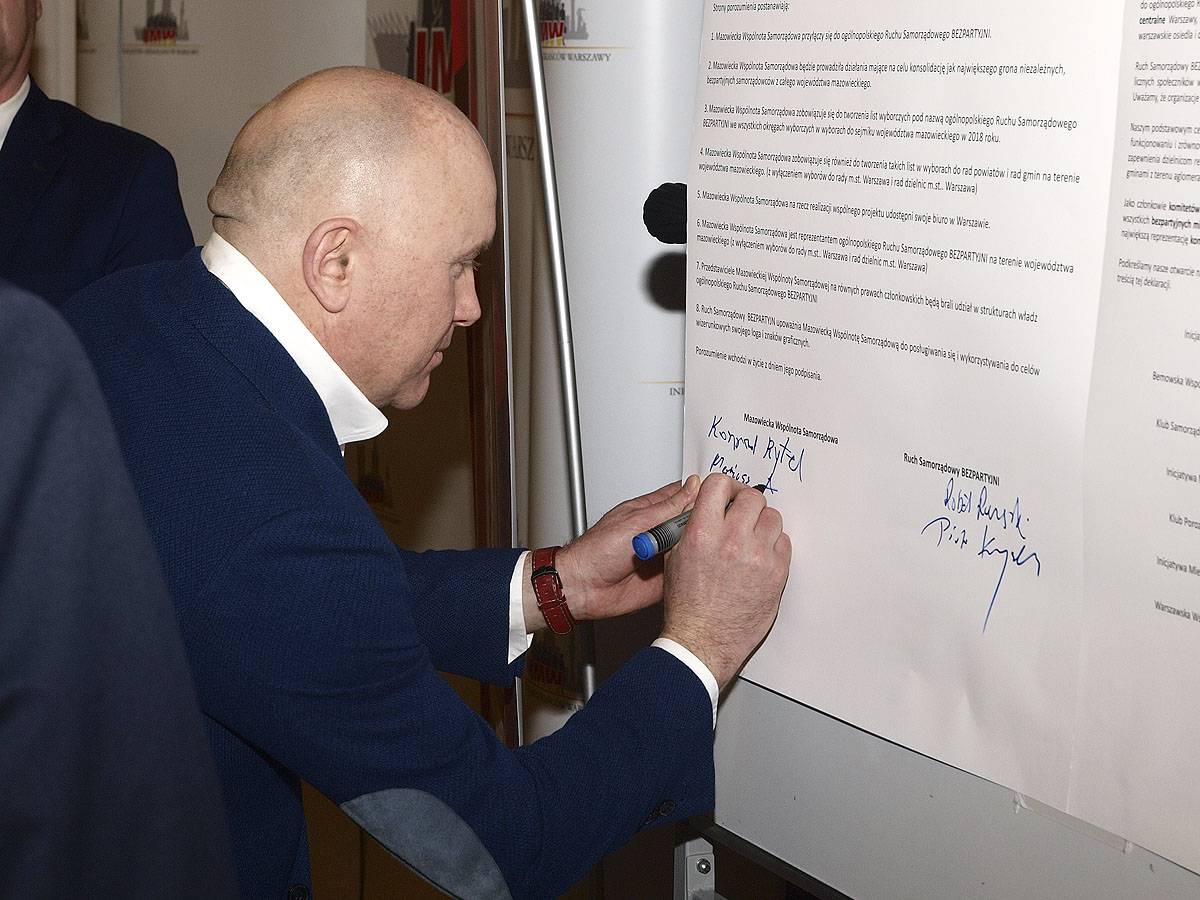 IMW
IMW
Strony porozumienia postanawiają:
1. Mazowiecka Wspólnota Samorządowa przyłączy się do ogólnopolskiego Ruchu Samorządowego BEZPARTYJNI.
2. Mazowiecka Wspólnota Samorządowa będzie prowadziła działania mające na celu konsolidację jak największego grona niezależnych,
bezpartyjnych samorządowców z całego województwa mazowieckiego.
3. Mazowiecka Wspólnota Samorządowa zobowiązuje się do tworzenia list wyborczych pod nazwą ogólnopolskiego Ruchu Samorządowego
BEZPARTYJNI we wszystkich okręgach wyborczych w wyborach do sejmiku województwa mazowieckiego w 2018 roku.
4. Mazowiecka Wspólnota Samorządowa zobowiązuje się również do tworzenia takich list w wyborach do rad powiatów i rad gmin na terenie
województwa mazowieckiego. (z wyłączeniem wyborów do rady m.st. Warszawa i rad dzielnic m.st.. Warszawa)
5. Mazowiecka Wspólnota Samorządowa na rzecz realizacji wspólnego projektu udostępni swoje biuro w Warszawie.
6. Mazowiecka Wspólnota Samorządowa jest reprezentantem ogólnopolskiego Ruchu Samorządowego BEZPARTYJNI na terenie województwa
mazowieckiego (z wyłączeniem wyborów do rady m.st.. Warszawa i rad dzielnic m.st. Warszawa)
7. Przedstawiciele Mazowieckiej Wspólnoty Samorządowej na równych prawach członkowskich będą brali udział w strukturach władz
ogólnopolskiego Ruchu Samorządowego BEZPARTYJNI
8. Ruch Samorządowy BEZPARTYJN upoważnia Mazowiecką Wspólnotę Samorządową do posługiwania się i wykorzystywania do celów
wizerunkowych swojego loga i znaków graficznych.
Porozumienie wchodzi w życie z dniem jego podpisania.
Mazowiecka Wspólnota Samorządowa
Konrad Rytel
Ruch Samorządowy BEZPARTYJNI
Robert
Piotr
do ogólnopolskiego
centralne Warszawy,
warszawskie osiedla i
Ruch Samorządowy BEZ
licznych społeczników w
Uważamy, że organizacje
Naszym podstawowym ce
funkcjonowaniu i zrówno
zapewnienia dzielnicom re
gminami z terenu aglomera
Jako członkowie komitetów
wszystkich bezpartyjnych mi
największą reprezentację
Podkreślamy nasze otwarcie
treścią tej deklaracji.
Inicja
Bemowska Wspó
Klub Samorząd
Inicjatywa
Klub Poro
Inicjatywa Mie
Warszawska Ws